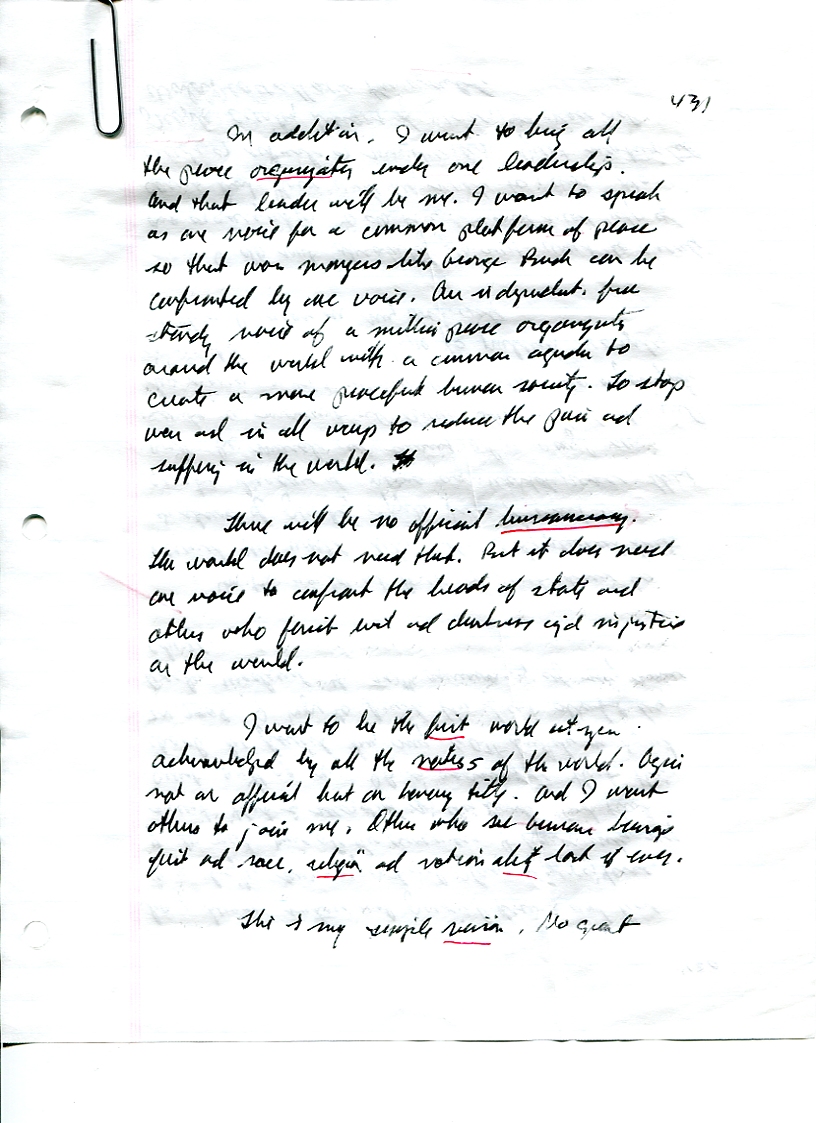 431
In addition, I want to bring all
the peace organizations under one leadership.
And that leader will be me. I want to speak
as one voice for a common platform of peace
so that war mongers like George Bush can be
confronted by one voice. An independent, free
standing voice of a million peace organizations
around the world with a common agenda to
create a more peaceful human society. To stop
war and in all ways to reduce the pain and
suffering in the world.
There will be no official bureaucracy.
The world does not need that. But it does need
one voice to confront the heads of state and
others who permit evil and darkness and injustice
on the world.
I want to be the first world citizen
acknowledged by all the nations of the world. Again
not an official but an honorary title. And I want
others to join me. Others who see human beings
first and race, religion and nationality last if ever.
This is my simple vision. No great